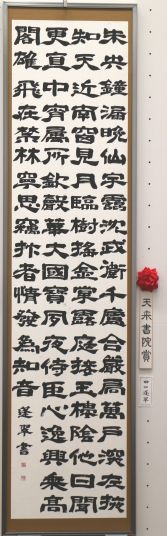 未央鐘漏晚仙宇靄沈沈武衛千廬合嚴扃萬戶深左掖
知天近南窗見月臨樹搖金掌露庭接玉樓陰他日聞
更直中宵屬所欽聲華大國寶夙夜侍臣心逸興乘高
閣雄飛在禁林寧思竊抃者情發為知音 蓬翠書
天来書院賞